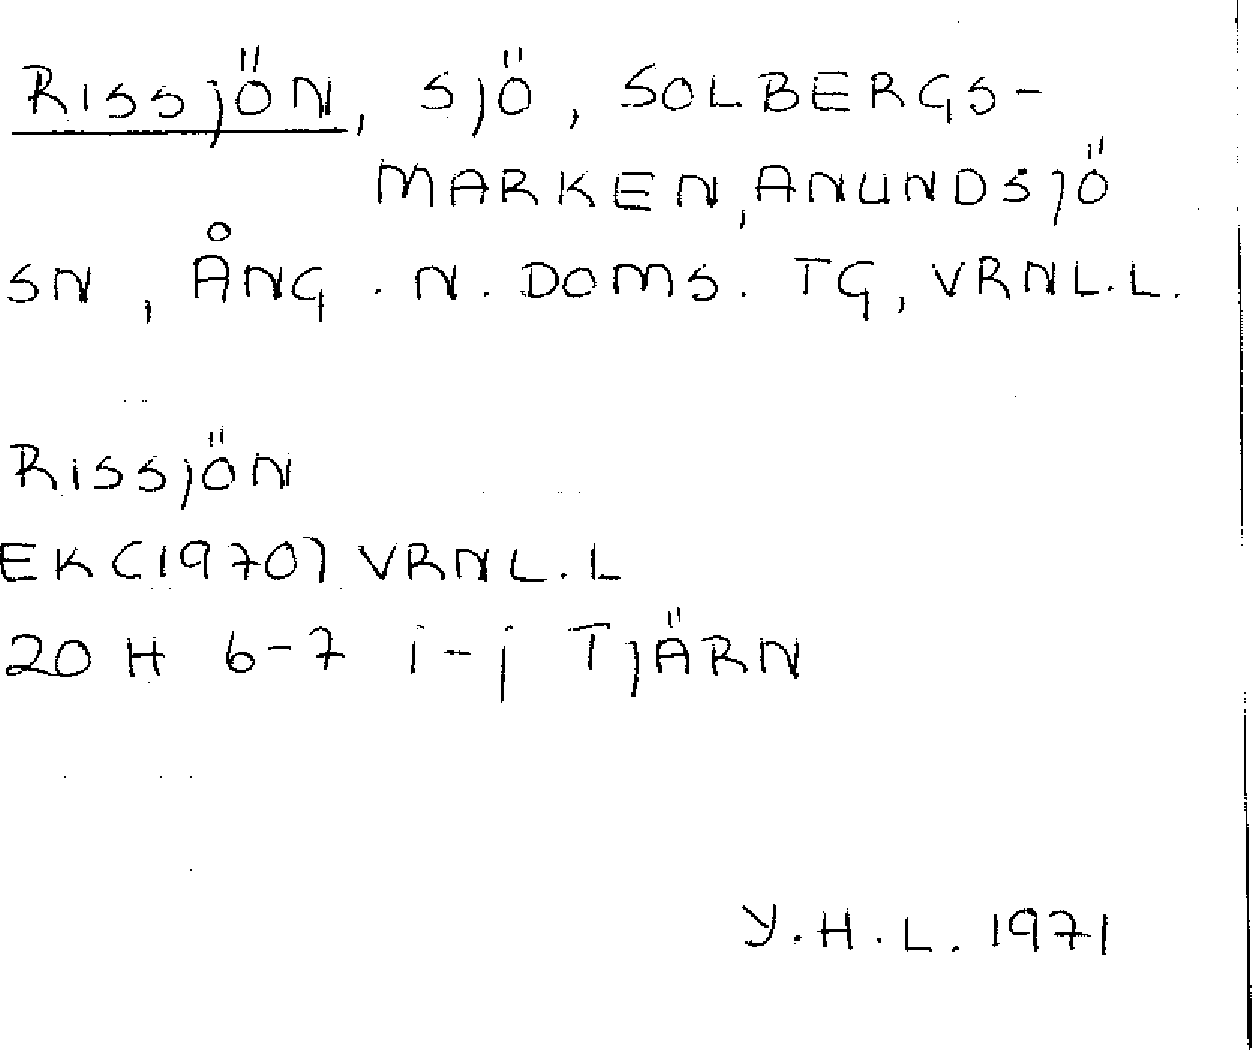 RISSJÖN, SJÖ, SOLBERGS-
MARKEN, ANUNDSJÖ
SN, ÅNG. N. DOMS. TG, VRNL.L.
RISSJÖN
EK(1970) VRNL.L
20 H 6-7 i-j TJÄRN
Y.H.L. 1971